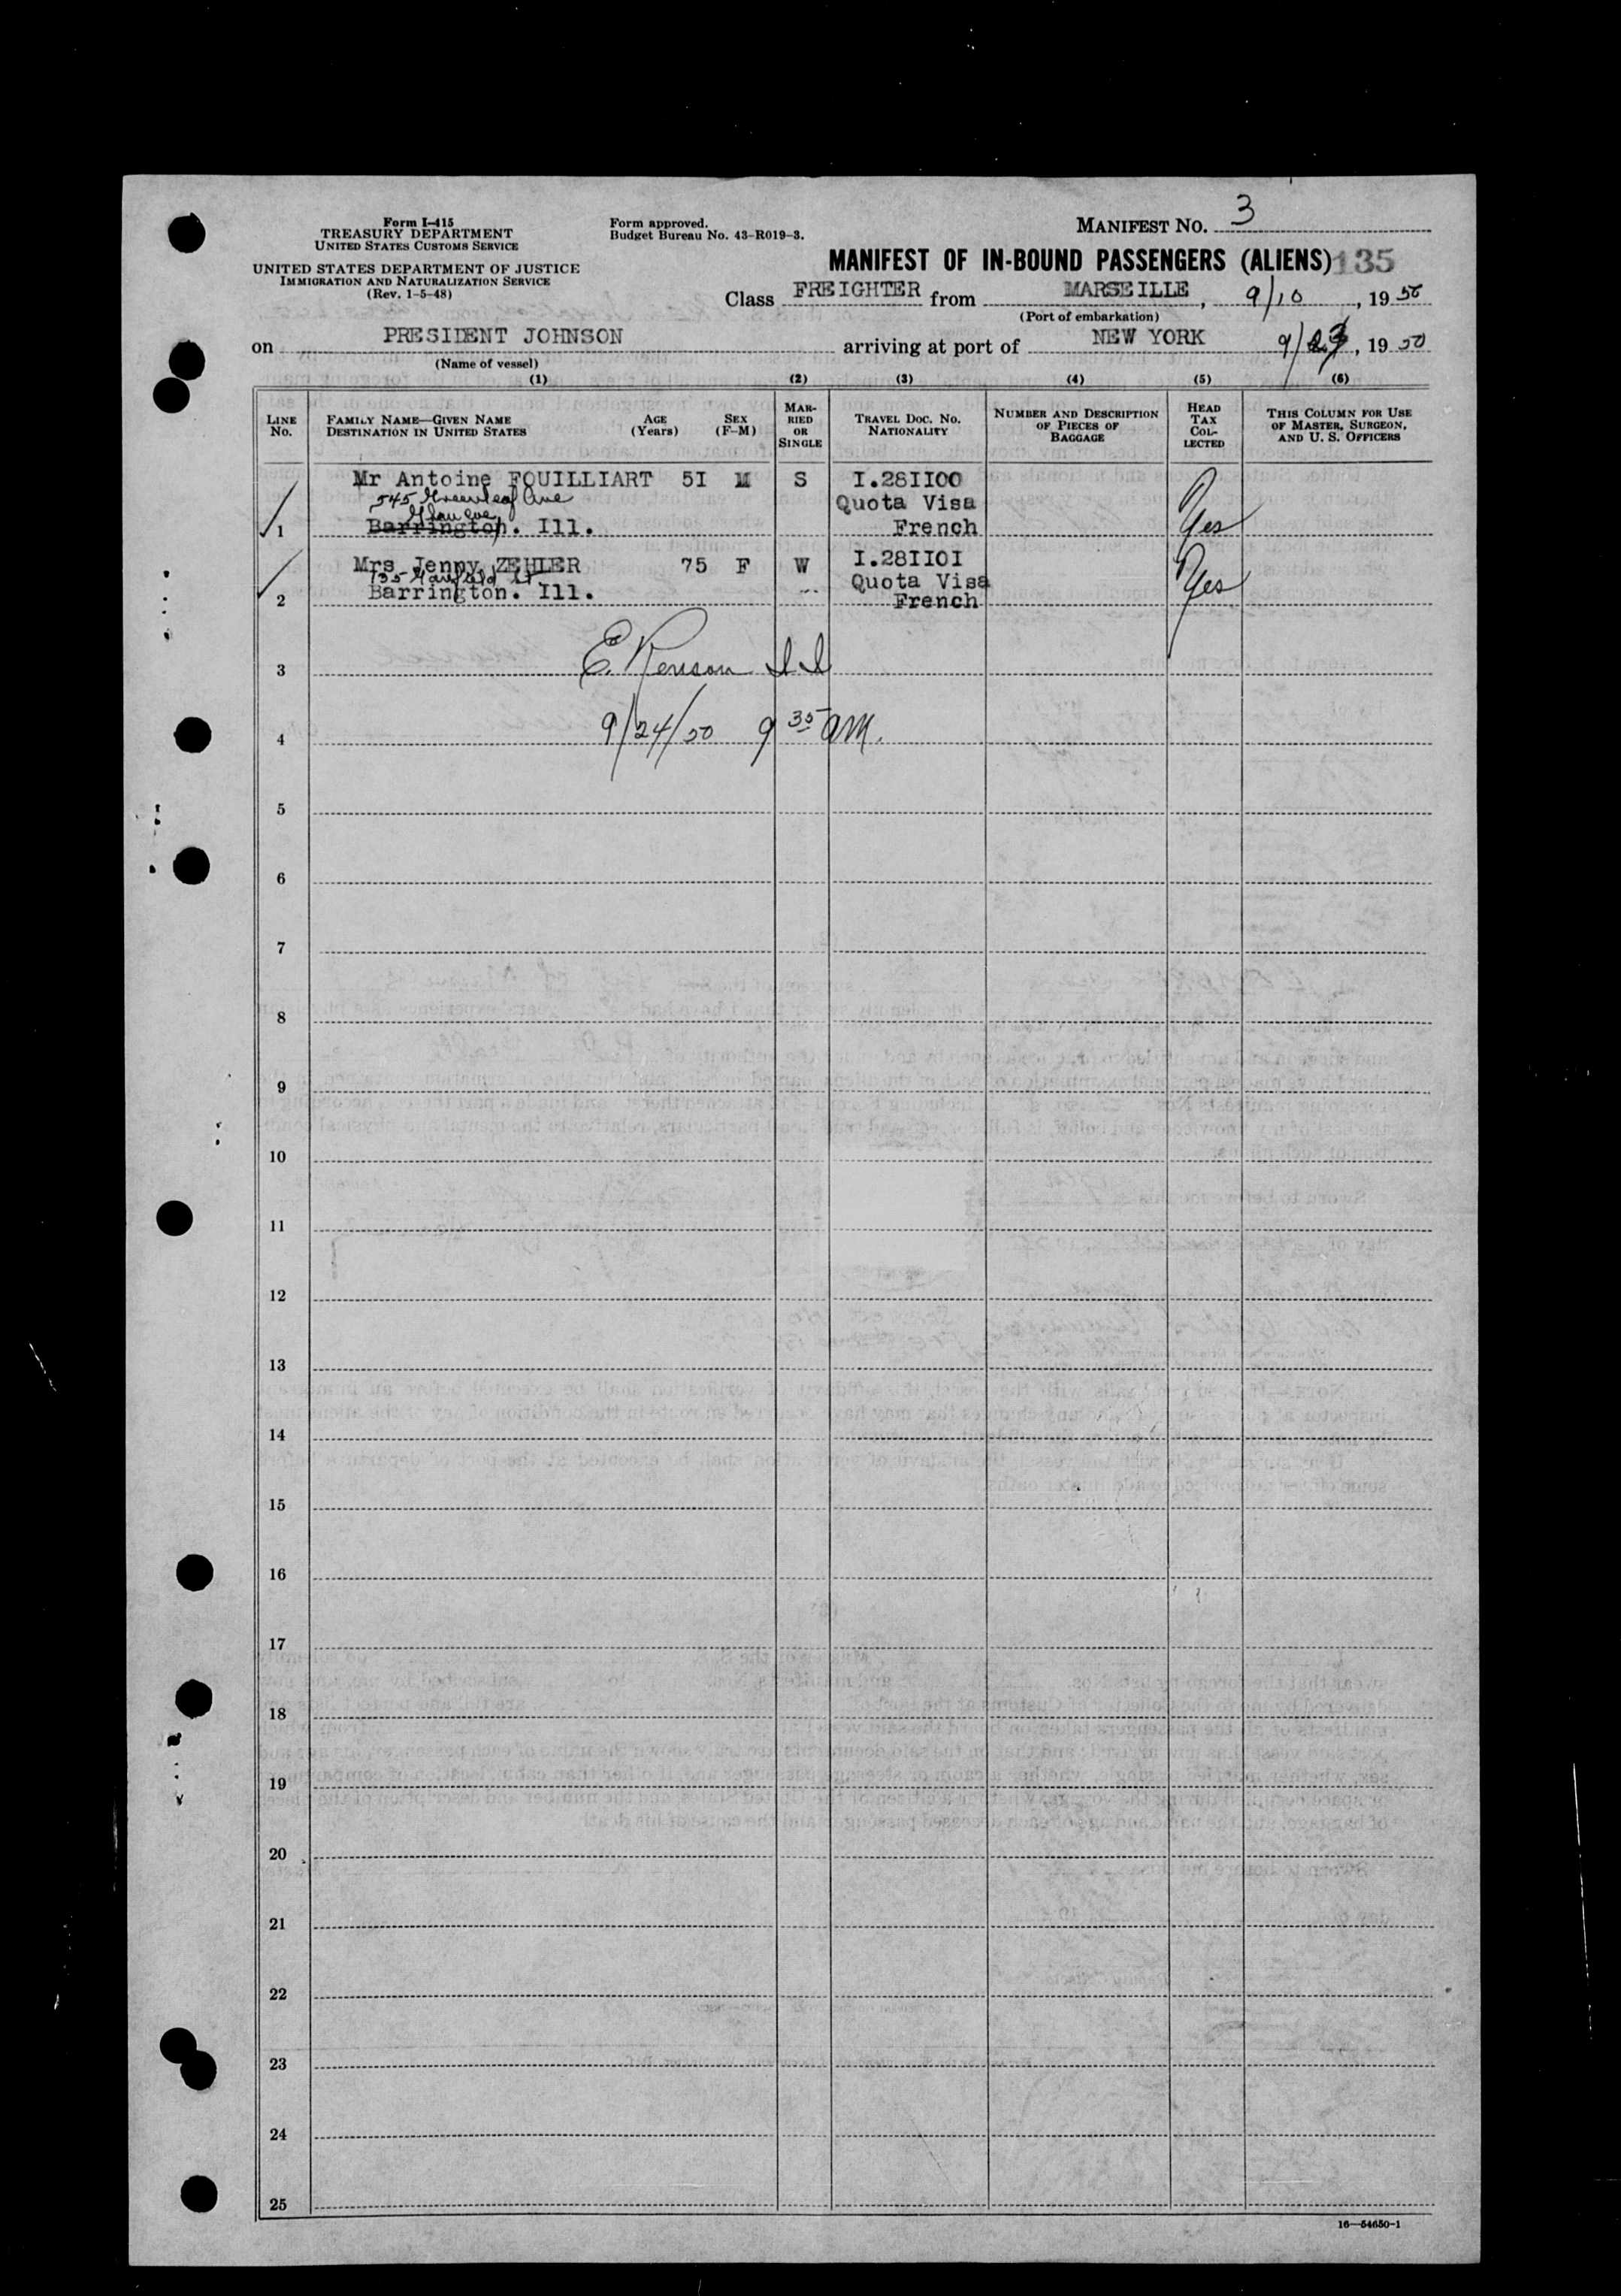 Form I-415
TREASURY DEPARTMENT
UNITED STATES CUSTOMS SERVICE
UNITED STATES DEPARTMENT OF JUSTICE
IMMIGRATION AND NATURALIZATION SERVICE
(Rev. 1-5-48)
Form approved.
Budget Bureau No. 43-R019-3.
MANIFEST NO. 3
MANIFEST OF IN-BOUND PASSENGERS (ALIENS) 135
Class FREIGHTER from MARSEILLE, 9/10, 1950
(Port of embarkation)
on PRESIDENT JOHNSON arriving at port of NEW YORK 9/23, 1950
(Name of vessel)
(1) (2) (3) (4) (5) (6)
LINE No. FAMILY NAME—GIVEN NAME DESTINATION IN UNITED STATES AGE (Years) SEX (F-M) MARRIED OR SINGLE TRAVEL DOC. NO. NATIONALITY NUMBER AND DESCRIPTION OF PIECES OF BAGGAGE HEAD TAX COLLECTED THIS COLUMN FOR USE OF MASTER, SURGEON, AND U. S. OFFICERS
Mr Antoine FOUILLIART 5I M S I.28II00
545 Greenleaf Ave Quota Visa
1 Barrington. Ill. French Yes
Mrs Jenny ZEHLER 75 F W I.28II0I
St. Quota Visa
2 Barrington. Ill. French Yes
3 E. Renson I I
4 9/24/50 9 35 AM.
5
6
7
8
9
10
11
12
13
14
15
16
17
18
19
20
21
22
23
24
25
16—54650-1